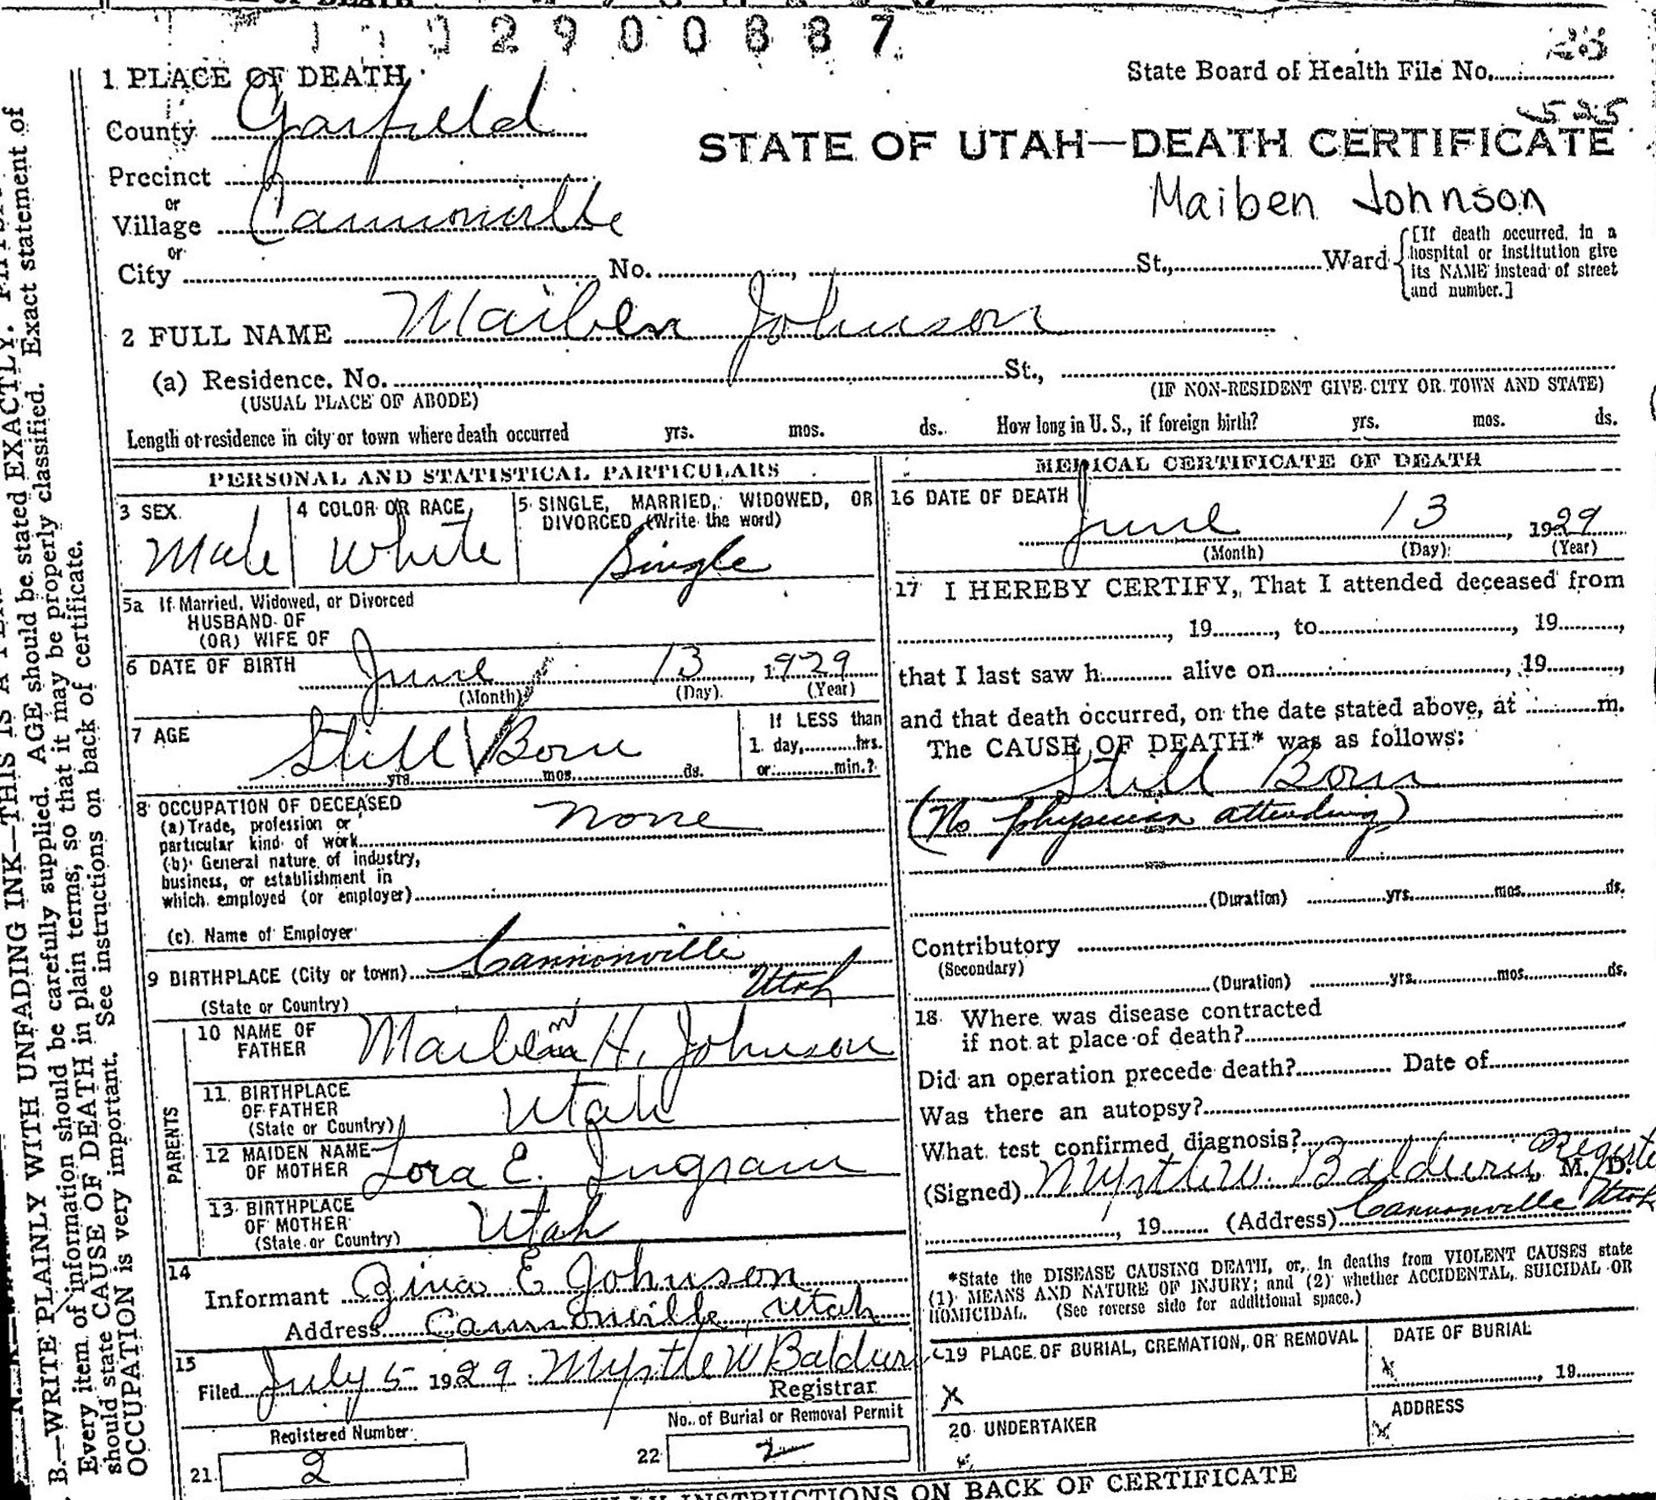 2900887
1 PLACE OF DEATH
State Board of Health File No. 28
525
County Garfield
STATE OF UTAH—DEATH CERTIFICATE
Precinct
or
Maiben Johnson
Village Cannonville
or
City No. , St., Ward
[If death occurred, in a
hospital or institution give
its NAME instead of street
and number.]
2 FULL NAME Maiben Johnson
(a) Residence. No. St.,
(USUAL PLACE OF ABODE)
(IF NON-RESIDENT GIVE CITY OR TOWN AND STATE)
Length of residence in city or town where death occurred yrs. mos. ds. How long in U. S., if foreign birth? yrs. mos. ds.
PERSONAL AND STATISTICAL PARTICULARS
3 SEX
Male
4 COLOR OR RACE
White
5 SINGLE, MARRIED, WIDOWED, OR
DIVORCED (Write the word)
Single
5a If Married, Widowed, or Divorced
HUSBAND OF
(OR) WIFE OF
6 DATE OF BIRTH June 13, 1929
(Month) (Day) (Year)
7 AGE Still Born
yrs. mos. ds.
If LESS than
1 day, hrs.
or min.?
8 OCCUPATION OF DECEASED
(a) Trade, profession or
particular kind of work none
(b) General nature of industry,
business, or establishment in
which employed (or employer)
(c) Name of Employer
9 BIRTHPLACE (City or town) Cannonville
(State or Country) Utah
PARENTS
10 NAME OF
FATHER Maiben H. Johnson
11 BIRTHPLACE
OF FATHER
(State or Country) Utah
12 MAIDEN NAME
OF MOTHER Lora E. Ingram
13 BIRTHPLACE
OF MOTHER
(State or Country) Utah
14
Informant Zina E Johnson
Address Cannonville, Utah
15
Filed July 5 1929 Myrtle W Baldwi
Registrar
Registered Number
21 2
No. of Burial or Removal Permit
22 2
MEDICAL CERTIFICATE OF DEATH
16 DATE OF DEATH
June 13, 1929
(Month) (Day) (Year)
17 I HEREBY CERTIFY, That I attended deceased from
, 19 , to , 19 ,
that I last saw h alive on , 19 ,
and that death occurred, on the date stated above, at m.
The CAUSE OF DEATH* was as follows:
Still Born
(No physician attending)
(Duration) yrs. mos. ds.
Contributory
(Secondary)
(Duration) yrs. mos. ds.
18 Where was disease contracted
if not at place of death?
Did an operation precede death? Date of
Was there an autopsy?
What test confirmed diagnosis?
Registe
(Signed) Myrtle W. Baldwin, M. D.
, 19 (Address) Cannonville Utah
*State the DISEASE CAUSING DEATH, or, in deaths from VIOLENT CAUSES state
(1) MEANS AND NATURE OF INJURY; and (2) whether ACCIDENTAL, SUICIDAL OR
HOMICIDAL. (See reverse side for additional space.)
19 PLACE OF BURIAL, CREMATION, OR REMOVAL
X
DATE OF BURIAL
X , 19
20 UNDERTAKER
ADDRESS
X
INSTRUCTIONS ON BACK OF CERTIFICATE
B.—WRITE PLAINLY WITH UNFADING INK—THIS IS A
Every item of information should be carefully supplied. AGE should be stated EXACTLY.
should state CAUSE OF DEATH in plain terms, so that it may be properly classified. Exact statement of
OCCUPATION is very important. See instructions on back of certificate.